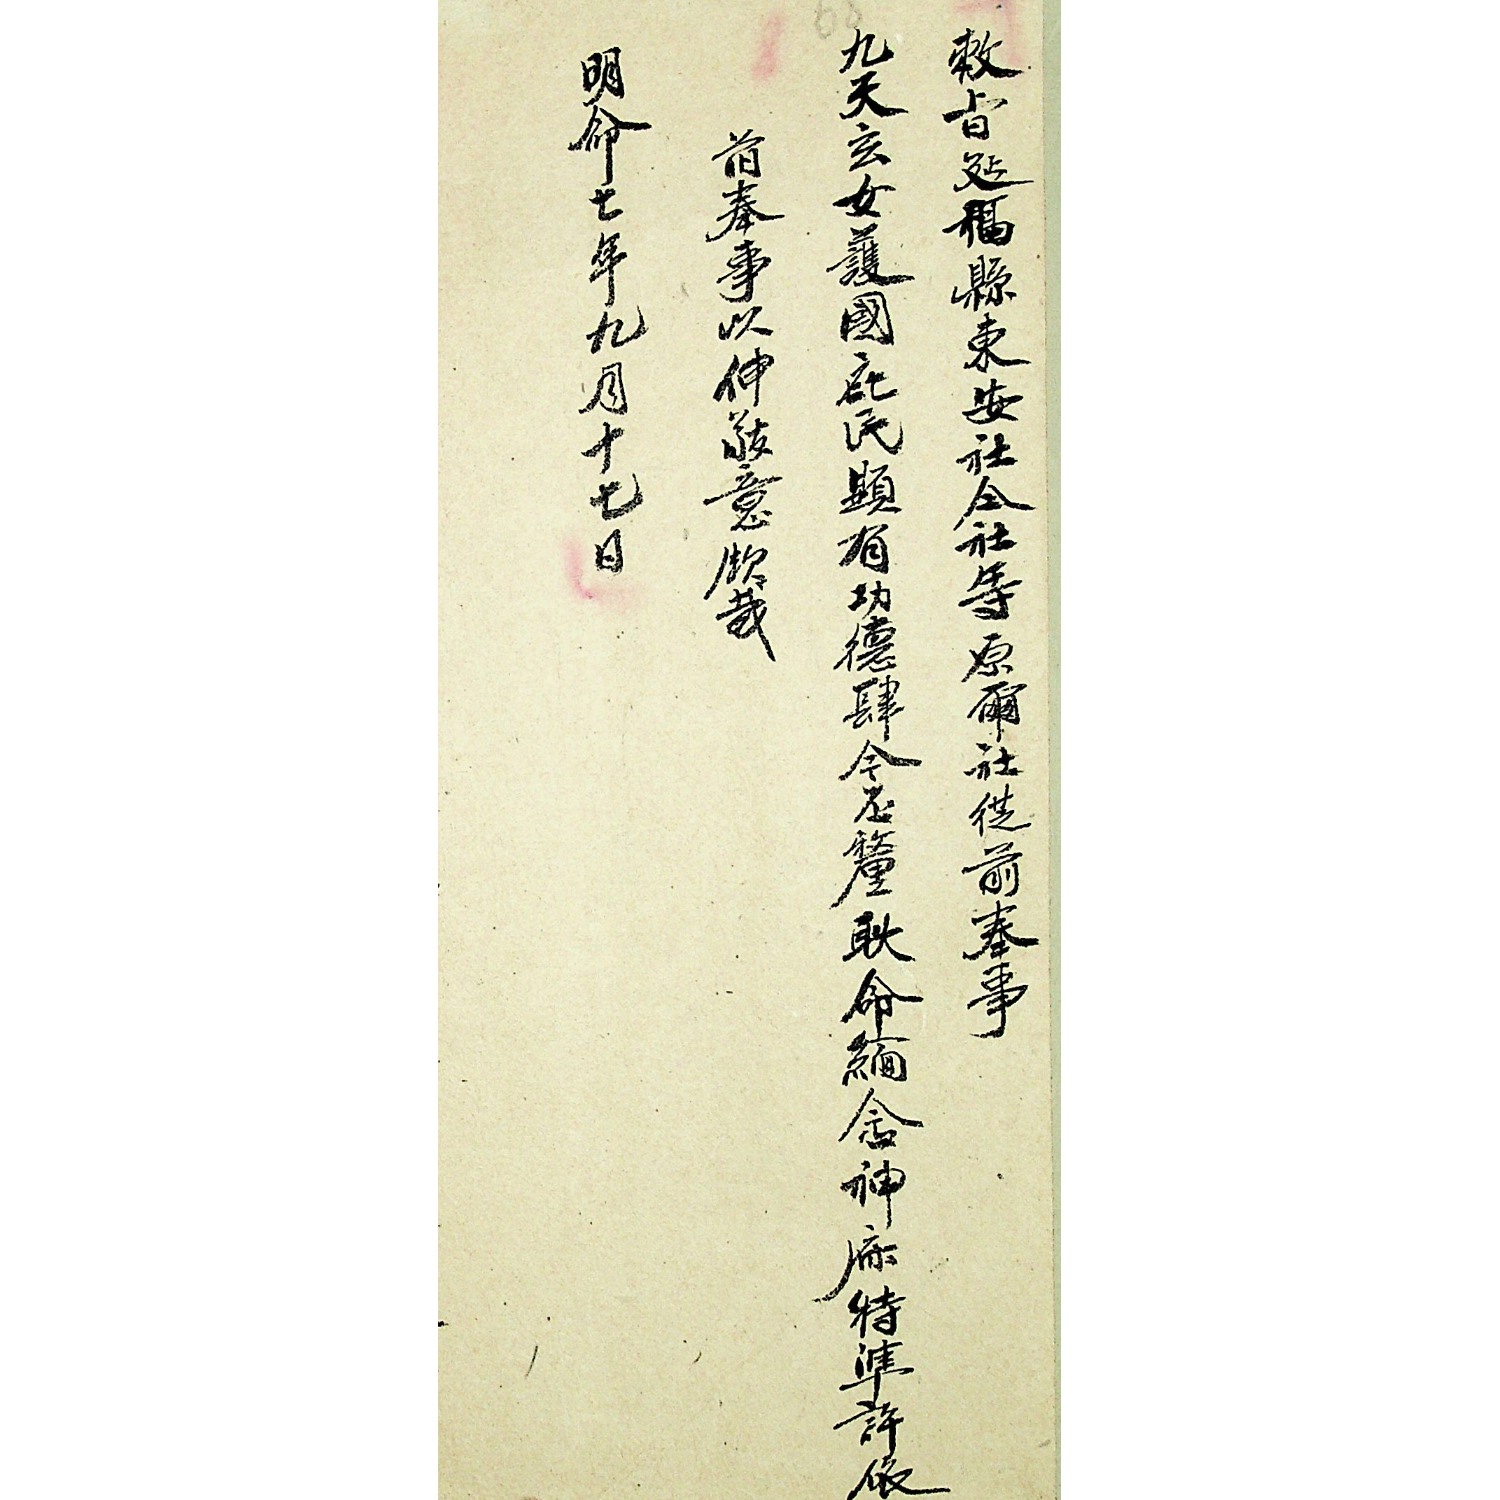 敕旨延福縣東安社仝社等原爾社從前奉事
九天玄女護國庇民顯有功德肆今丕釐耿命緬念神庥特準許依
前奉事以伸敬意欽哉
明命七年九月十七日